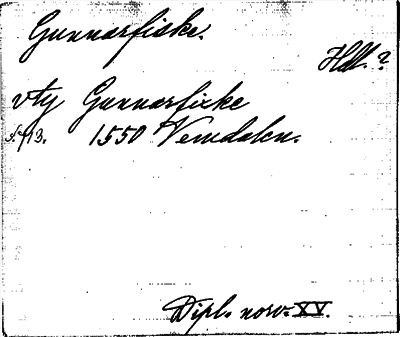 Gunnarfiske.
Hdl. ?
vty Gunnarfixke
s. 713. 1550 Vemdalen.
Dipl. norv. XV.